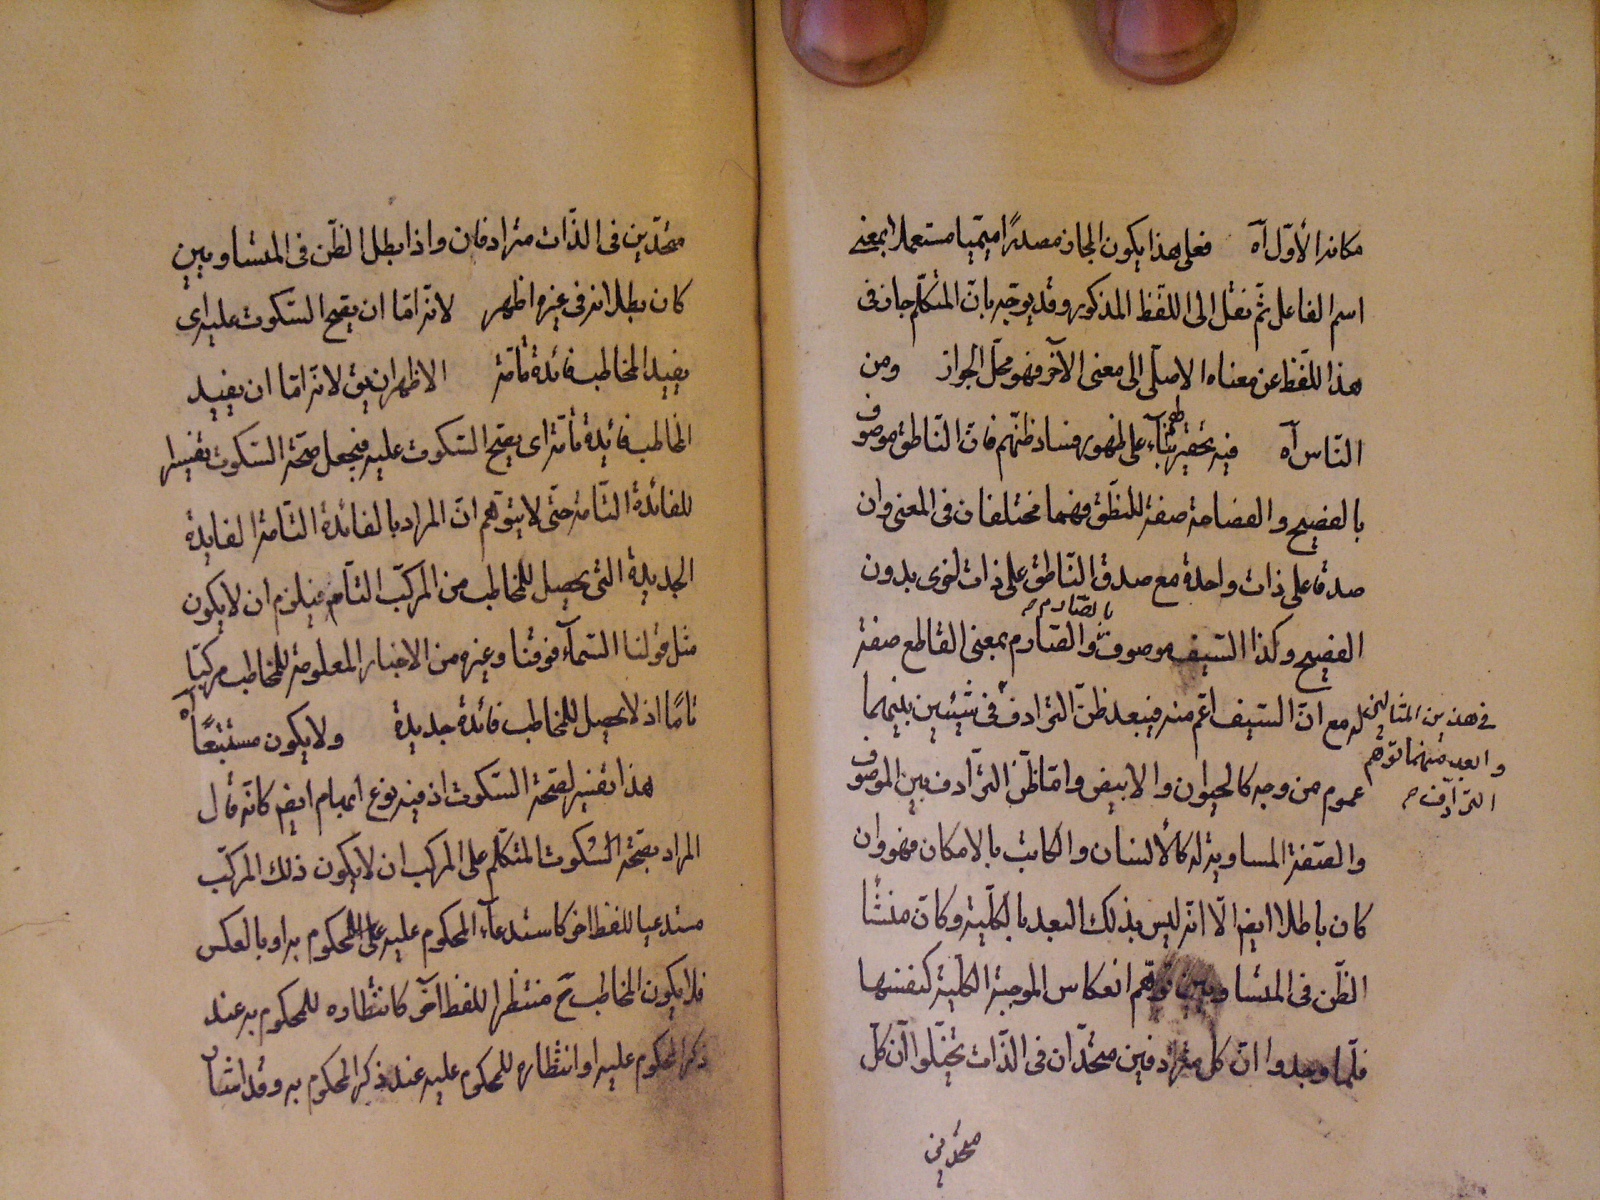 مكانه الأوّل آه فعلى هذا يكون المجاز مصدرًا ميميا مستعملا بمعنى
اسم الفاعل ثمّ نقل الى اللفظ المذكور وقد يوجّه بانّ المتكلّم جاز فى
هذا اللّفظ عن معناه الاصلّى الى معنى الآخر فهو محلّ الجواز ومن
النّاس آه فيه تحقير لهم بنآء على ظهور فساد ظنّهم فانّ النّاطق موصوف
بالفصيح والفصاحة صفة للنطّق فهما مختلفان فى المعنى وان
صدقا على ذات واحدة مع صدق النّاطق على ذات اخرى بدون
الفصيح وكذا السّيف موصوف بالصّارم والصّارم بمعنى القاطع صفة
له مع انّ السّيف اعّم منه فيبعد ظنّ التّرادف فى شيئين بينهما
فى هذين المثالين
وابعد منهما توهّم
التّرادف صح
عموم من وجه كالحيوان والابيض وامّا ظنّ التّرادف بين الموصوف
والصّفة المساوية له كالأنسان والكاتب بالامكان فهو وان
كان باطلا ايضا الّا انّه ليس بذلك البعد بالكلّية وكانّ منشأ
الظّن فى المتساويين توهّم انعكاس الموجبة الكلّية كنفسها
فلمّا وجدوا انّ كل مترادفين متحّدان فى الذّات تخيّلوا انّ كلّ
متحدين
متحّدين فى الذّات مترادفان واذا بطل الظّن فى المتساويين
كان بطلانه فى غيره اظهر لانّه امّا ان يصح السّكوت عليه اى
يفيد المخاطب فائدة تامّة الاظهر ان يقى لانّه امّا ان يفيد
المخاطب فائدة تامّة اى يصحّ السّكوت عليه فيجعل صحّة السّكوت تفسيرا
للفائدة التّامة حتّى لا يتوهّم انّ المراد بالفائدة التّامة الفايدة
الجديدة التى يحصيل للمخاطب من المركّب التاّم فيلزم ان لا يكون
مثل قولنا السّمآء فوقنا وغيره من الاخبار المعلومة للمخاطب مركبّا
تامّا اذ لا يحصيل للمخاطب فائدة جديدة ولا يكون مستتبعًا آه
هذا تفسير لصحّة السّكوت اذ فيه نوع ابهام ايضا كانّه قال
المراد بصحّة السّكوت المتكلّم على المركب ان لا يكون ذلك المركّب
مستدعيا للفظ اخر كاستدعآء المحكوم عليه على المحكوم به او بالعكس
فلا يكون المخاطب ح منتظرا للفظ آخر كانتظاره للمحكوم به عند
ذكر المحكوم عليه او انتظاره للمحكوم عليه عند ذكر المحكوم به وقد اشار